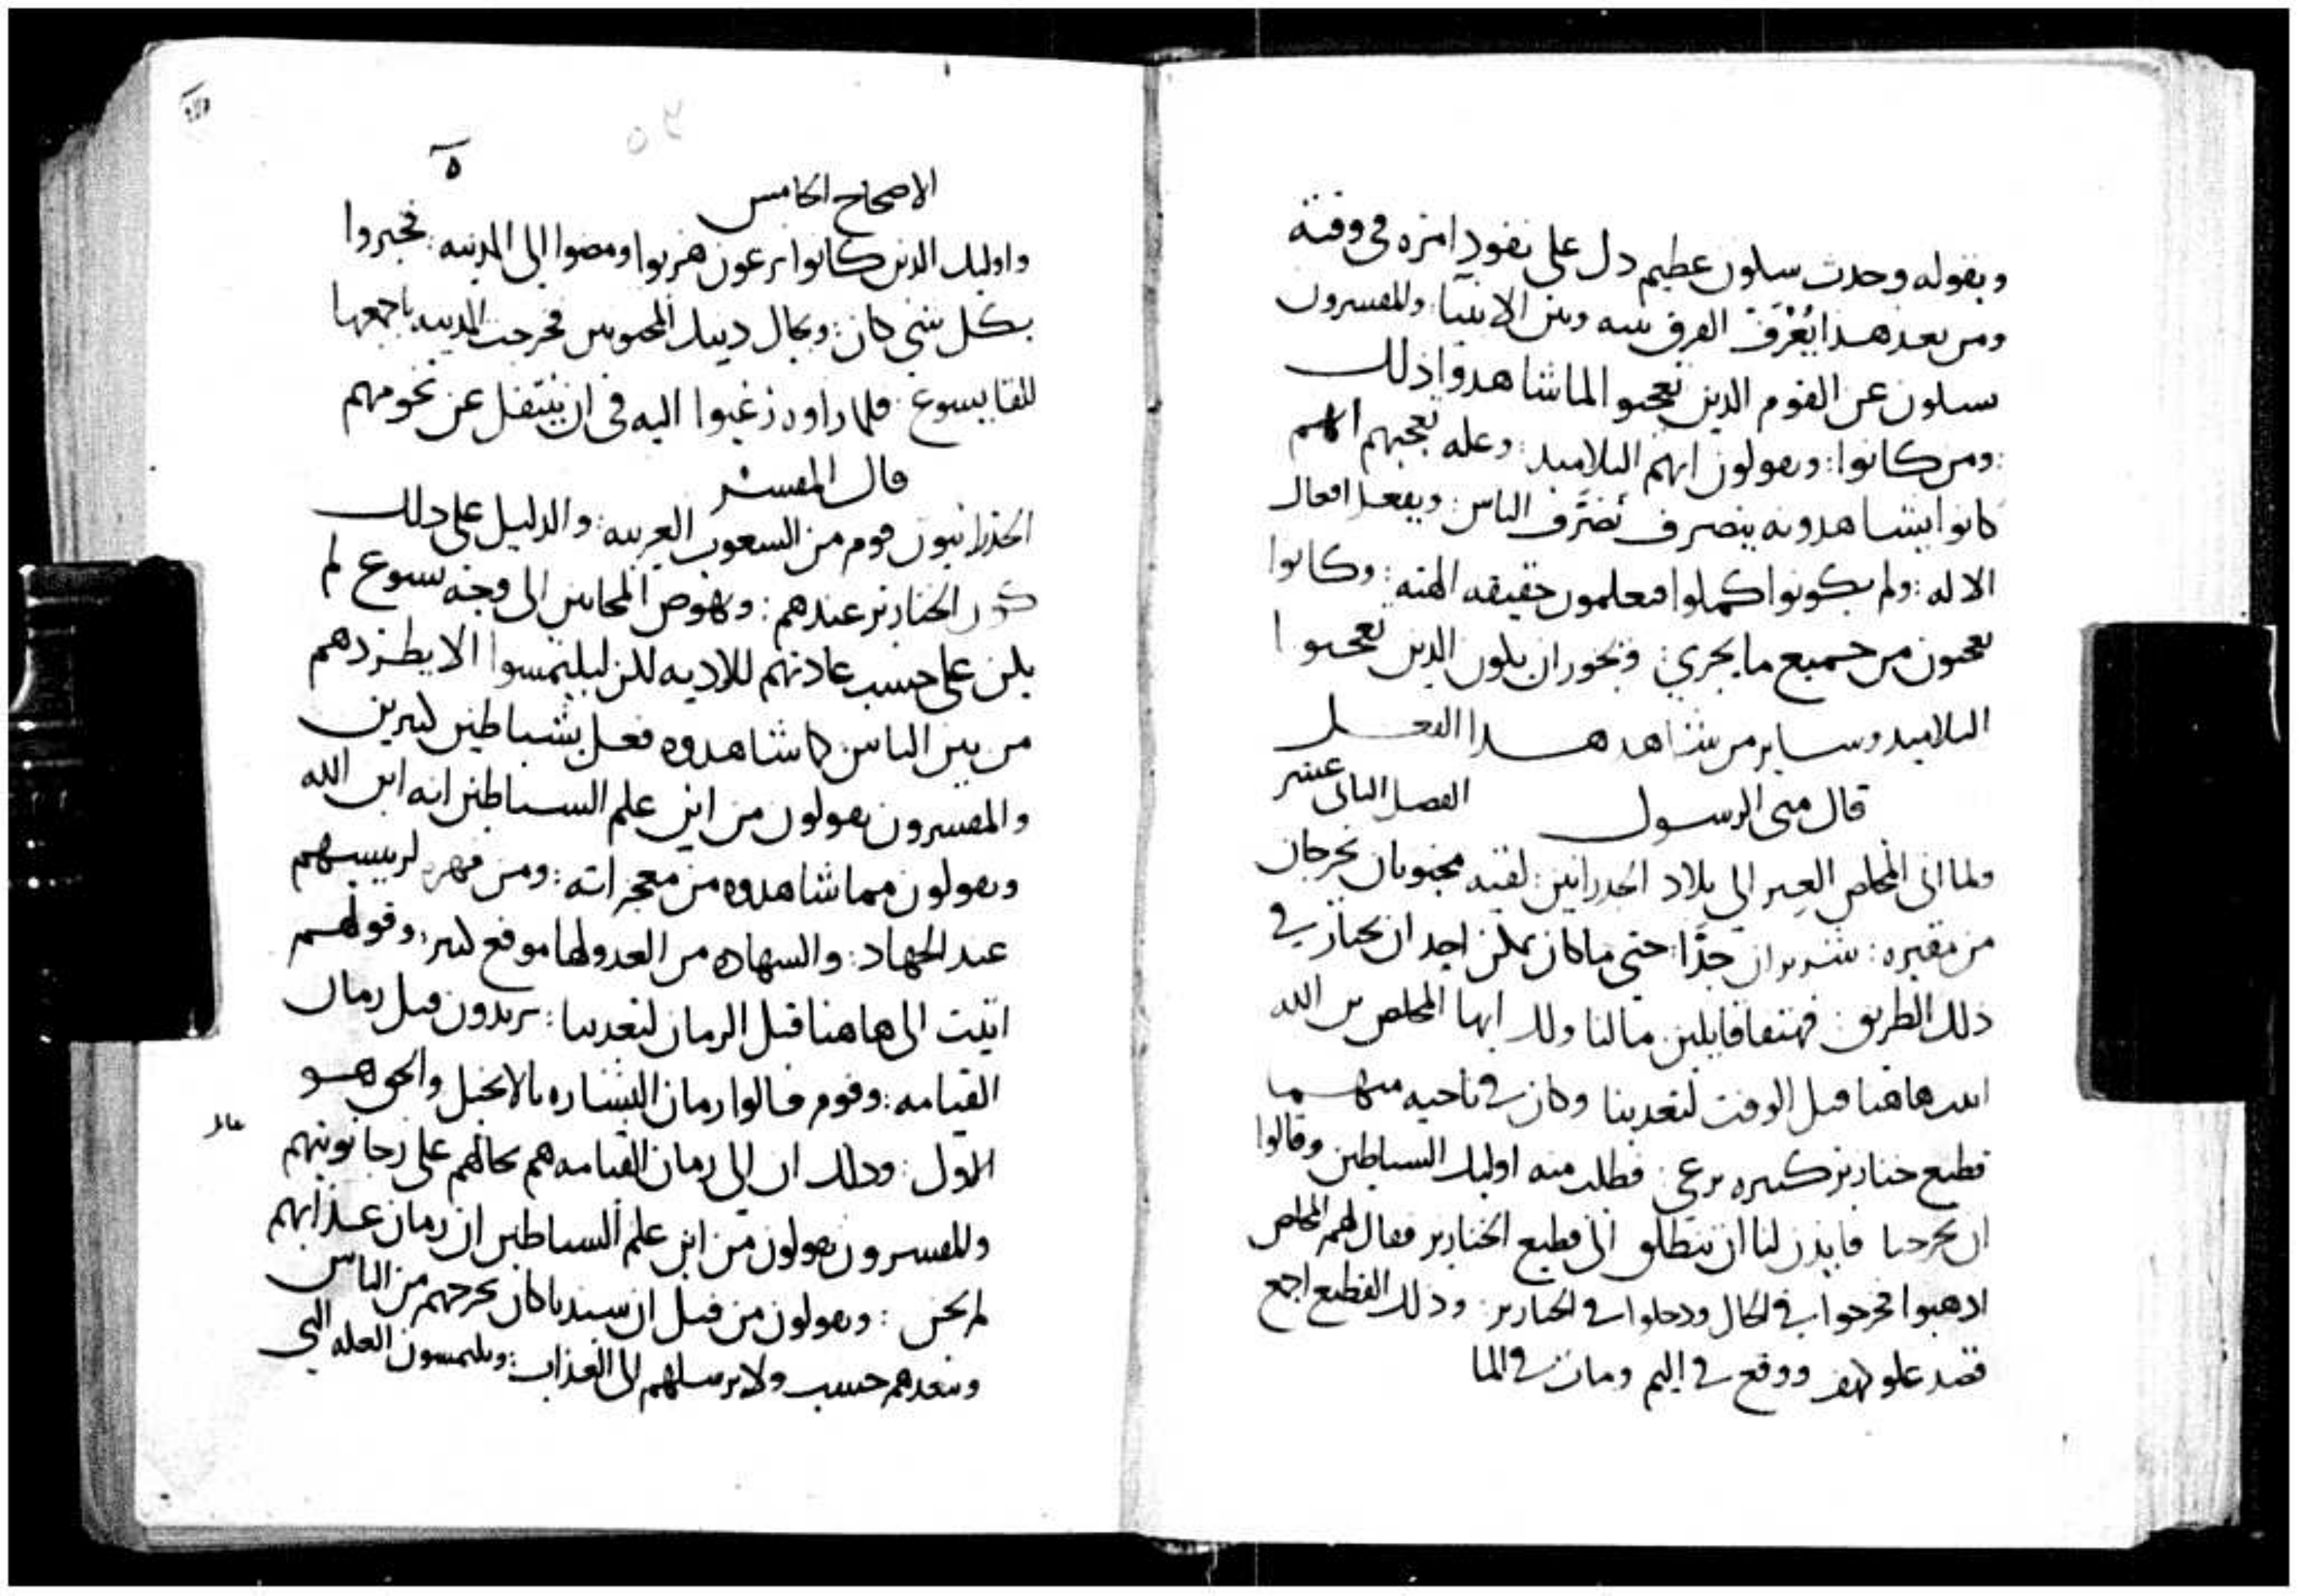 وبقوله وحدث سلون عظيم دل على نفود امره فى وقته
ومن بعد هدا يُعْرَف الفرق بينه وبين الانبيا والمفسرون
سلون عن القوم الدين تعجبوا لما شاهدوا ذلك
ومن كانوا: ويقولون انهم التلاميد: وعله تعجبهم انهم
كانوا يشاهدونه ينصرف تَصَرُف الناس: ويفعل افعال
الاله: ولم يكونوا كملوا فيعلمون حقيقه الهته: وكانوا
تعجبون من جميع ما يجري: ويجوز ان يكون الدين تعجبوا
التلاميد وساير من شاهد هدا الفعل
قال متى الرسول الفصل الثانى عشر
ولما اتى المخلص العبر الى بلاد الجدرانيين: لقيه مجنونان يخرجان
من مقبره: شريران جدًّا: حتى ما كان يمكن احد ان يجتاز في
ذلك الطريق فهتفا قايلين مالنا ولك ايها المخلص بن الله
اتيت هاهنا قبل الوقت لتعدبنا وكان في ناحيه منهما
قطيع خنازير كبيره ترعى: فطلب منه اوليك الشياطين وقالوا
ان تخرجنا فايذن لنا ان ننطلق الى قطيع الخنازير فقال لهم المخلص
ادهبوا فخرجوا في الحال ودخلوا في الخنازير: وذلك القطيع اجمع
قصد علو كهف ووقع في اليم ومات في الما
٥
الاصحاح الخامس
واوليك الدين كانوا يرعون هربوا ومضوا الى المدينه: فخبروا
بكل شي كان: وبحال دينك المجنونين فخرجت المدينه باجمعها
للقا يسوع: فلما راوه رغبوا اليه فى ان ينتقل عن تخومهم
قال المفسر
الجدرانيون قوم من الشعوب الغريبه: والدليل على دلك
كون الخنازير عندهم: ونهوض المجانين الى وجه يسوع لم
يكن على حسب عادتهم للاديه لكن ليلتمسوا الا يطردهم
من بين الناس كما شاهدوه فعل بشياطين كثيرين
والمفسرون يقولون من اين علم الشياطين انه ابن الله
ويقولون مما شاهدوه من معجزاته: ومن قهره لرييسهم
عند الجهاد: والشهاده من العدو لها موقع كبير: وقولهم
اتيت الى هاهنا قبل الزمان لتعدبنا: يريدون قبل زمان
القيامه: وقوم قالوا زمان البشاره بالانجيل والحق هو
الاول: ودلك ان الى زمان القيامه هم بحالهم على
والمفسرون يقولون من اين علم الشياطين ان زمان عذابهم
لم يحن: ويقولون من قبل ان سيدنا كان يخرجهم من الناس
ويبعدهم حسب ولا يرسلهم الى العذاب: ويلتمسون العله التي